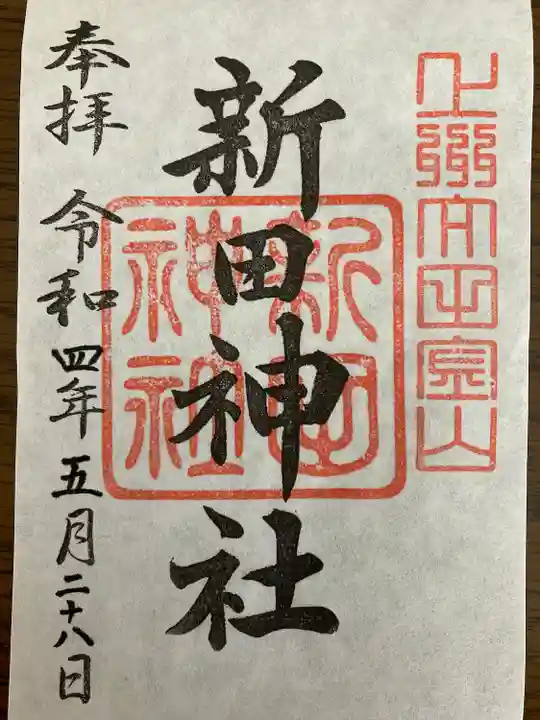 上州太田金山
新田神社
新田
神社
奉拝 令和四年五月二十八日